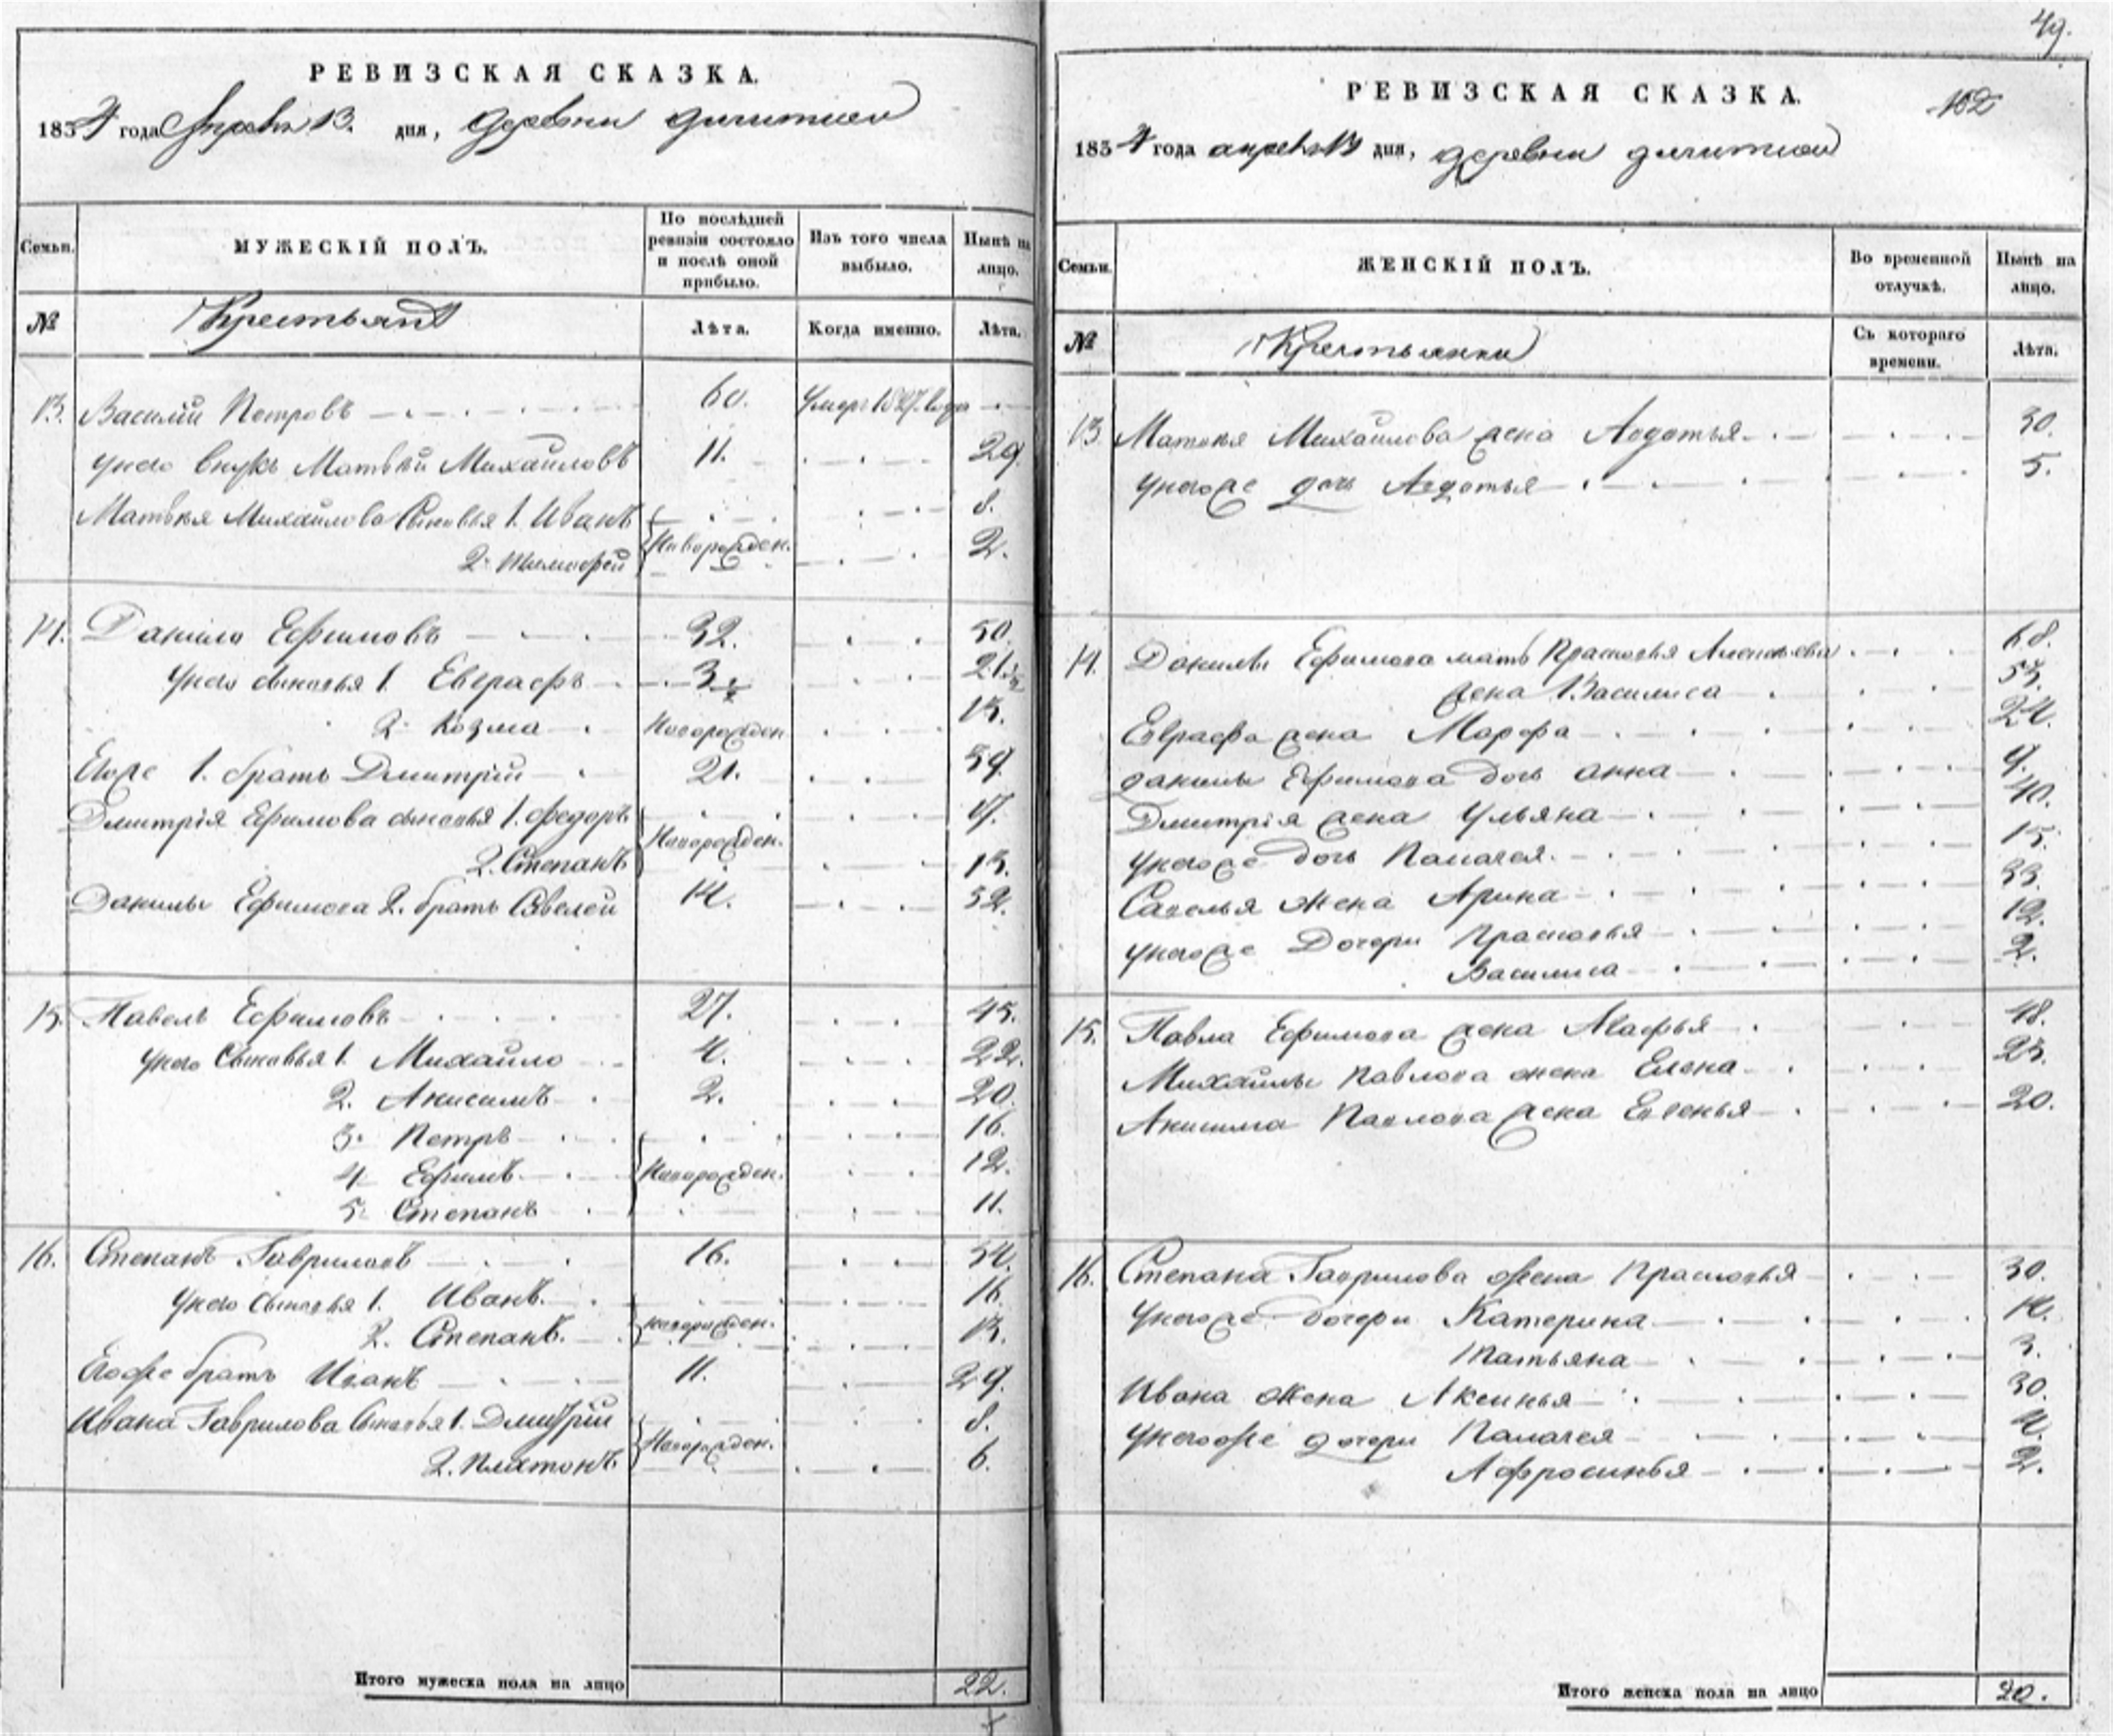 РЕВИЗСКАЯ СКАЗКА.
1834 года Апреля 13. дня, деревни
Семьи.
МУЖЕСКІЙ ПОЛЪ.
По послѣдней ревизіи состояло и послѣ оной прибыло.
Изъ того числа выбыло.
Нынѣ на лицо.
№
Крестьянъ
Лѣта.
Когда именно.
Лѣта.
13. Василій Петровъ 60. Умеръ 1827. года
унего внукъ Матвѣй Михайловъ 11. 29.
Матвея Михайлова Сыновья 1. Иванъ 8.
Новорожден.
2. Тимофей 2.
14. Данило Ефимовъ 32. 50.
унего сыновья 1. Евграфъ 3½ 21½
2. Козма Новорожден. 13.
Егоже 1. братъ Дмитрій 21. 39.
Дмитрія Ефимова сыновья 1. Федоръ 17.
Новорожден.
2. Степанъ 13.
Данилы Ефимова 2. братъ Савелей 14. 32.
15. Павелъ Ефимовъ 27. 45.
унего Сыновья 1. Михайло 4. 22.
2. Анисимъ 2. 20.
3. Петръ 16.
4. Ефимъ Новорожден. 12.
5. Степанъ 11.
16. Степанъ Гавриловъ 16. 34.
унего Сыновья 1. Иванъ. 16.
Новорожден.
2. Степанъ. 13.
Егоже братъ Иванъ 11. 29.
Ивана Гаврилова Сыновья 1. Дмитрій 8.
Новорожден.
2. Платонъ. 6.
Итого мужеска пола на лицо 22.
49.
РЕВИЗСКАЯ СКАЗКА.
162
1834 года апреля 13 дня, деревни
Семьи.
ЖЕНСКІЙ ПОЛЪ.
Во временной отлучкѣ.
Нынѣ на лицо.
№
Крестьянки
Съ котораго времени.
Лѣта.
13. Матвея Михайлова жена Авдотья 30.
унегоже дочь Авдотья 5.
14. Данилы Ефимова мать Прасковья Алексѣева 68.
жена Василиса 53.
Евграфа жена Марфа 24.
Данилы Ефимова дочь анна 9.
Дмитрія жена Ульяна 40.
унегоже дочь Палагея 15.
Савелья жена Арина 33.
унегоже Дочери Прасковья 12.
Василиса 2.
15. Павла Ефимова жена Агафья 48.
Михайлы Павлова жена Елена 23.
Анисима Павлова жена Евгенья 20.
16. Степана Гаврилова жена Прасковья 30.
унегоже дочери Катерина 14.
Татьяна 3.
Ивана Жена Аксинья 30.
унегоже дочери Палагея 4.
Афросинья 2.
Итого женска пола на лицо 20.